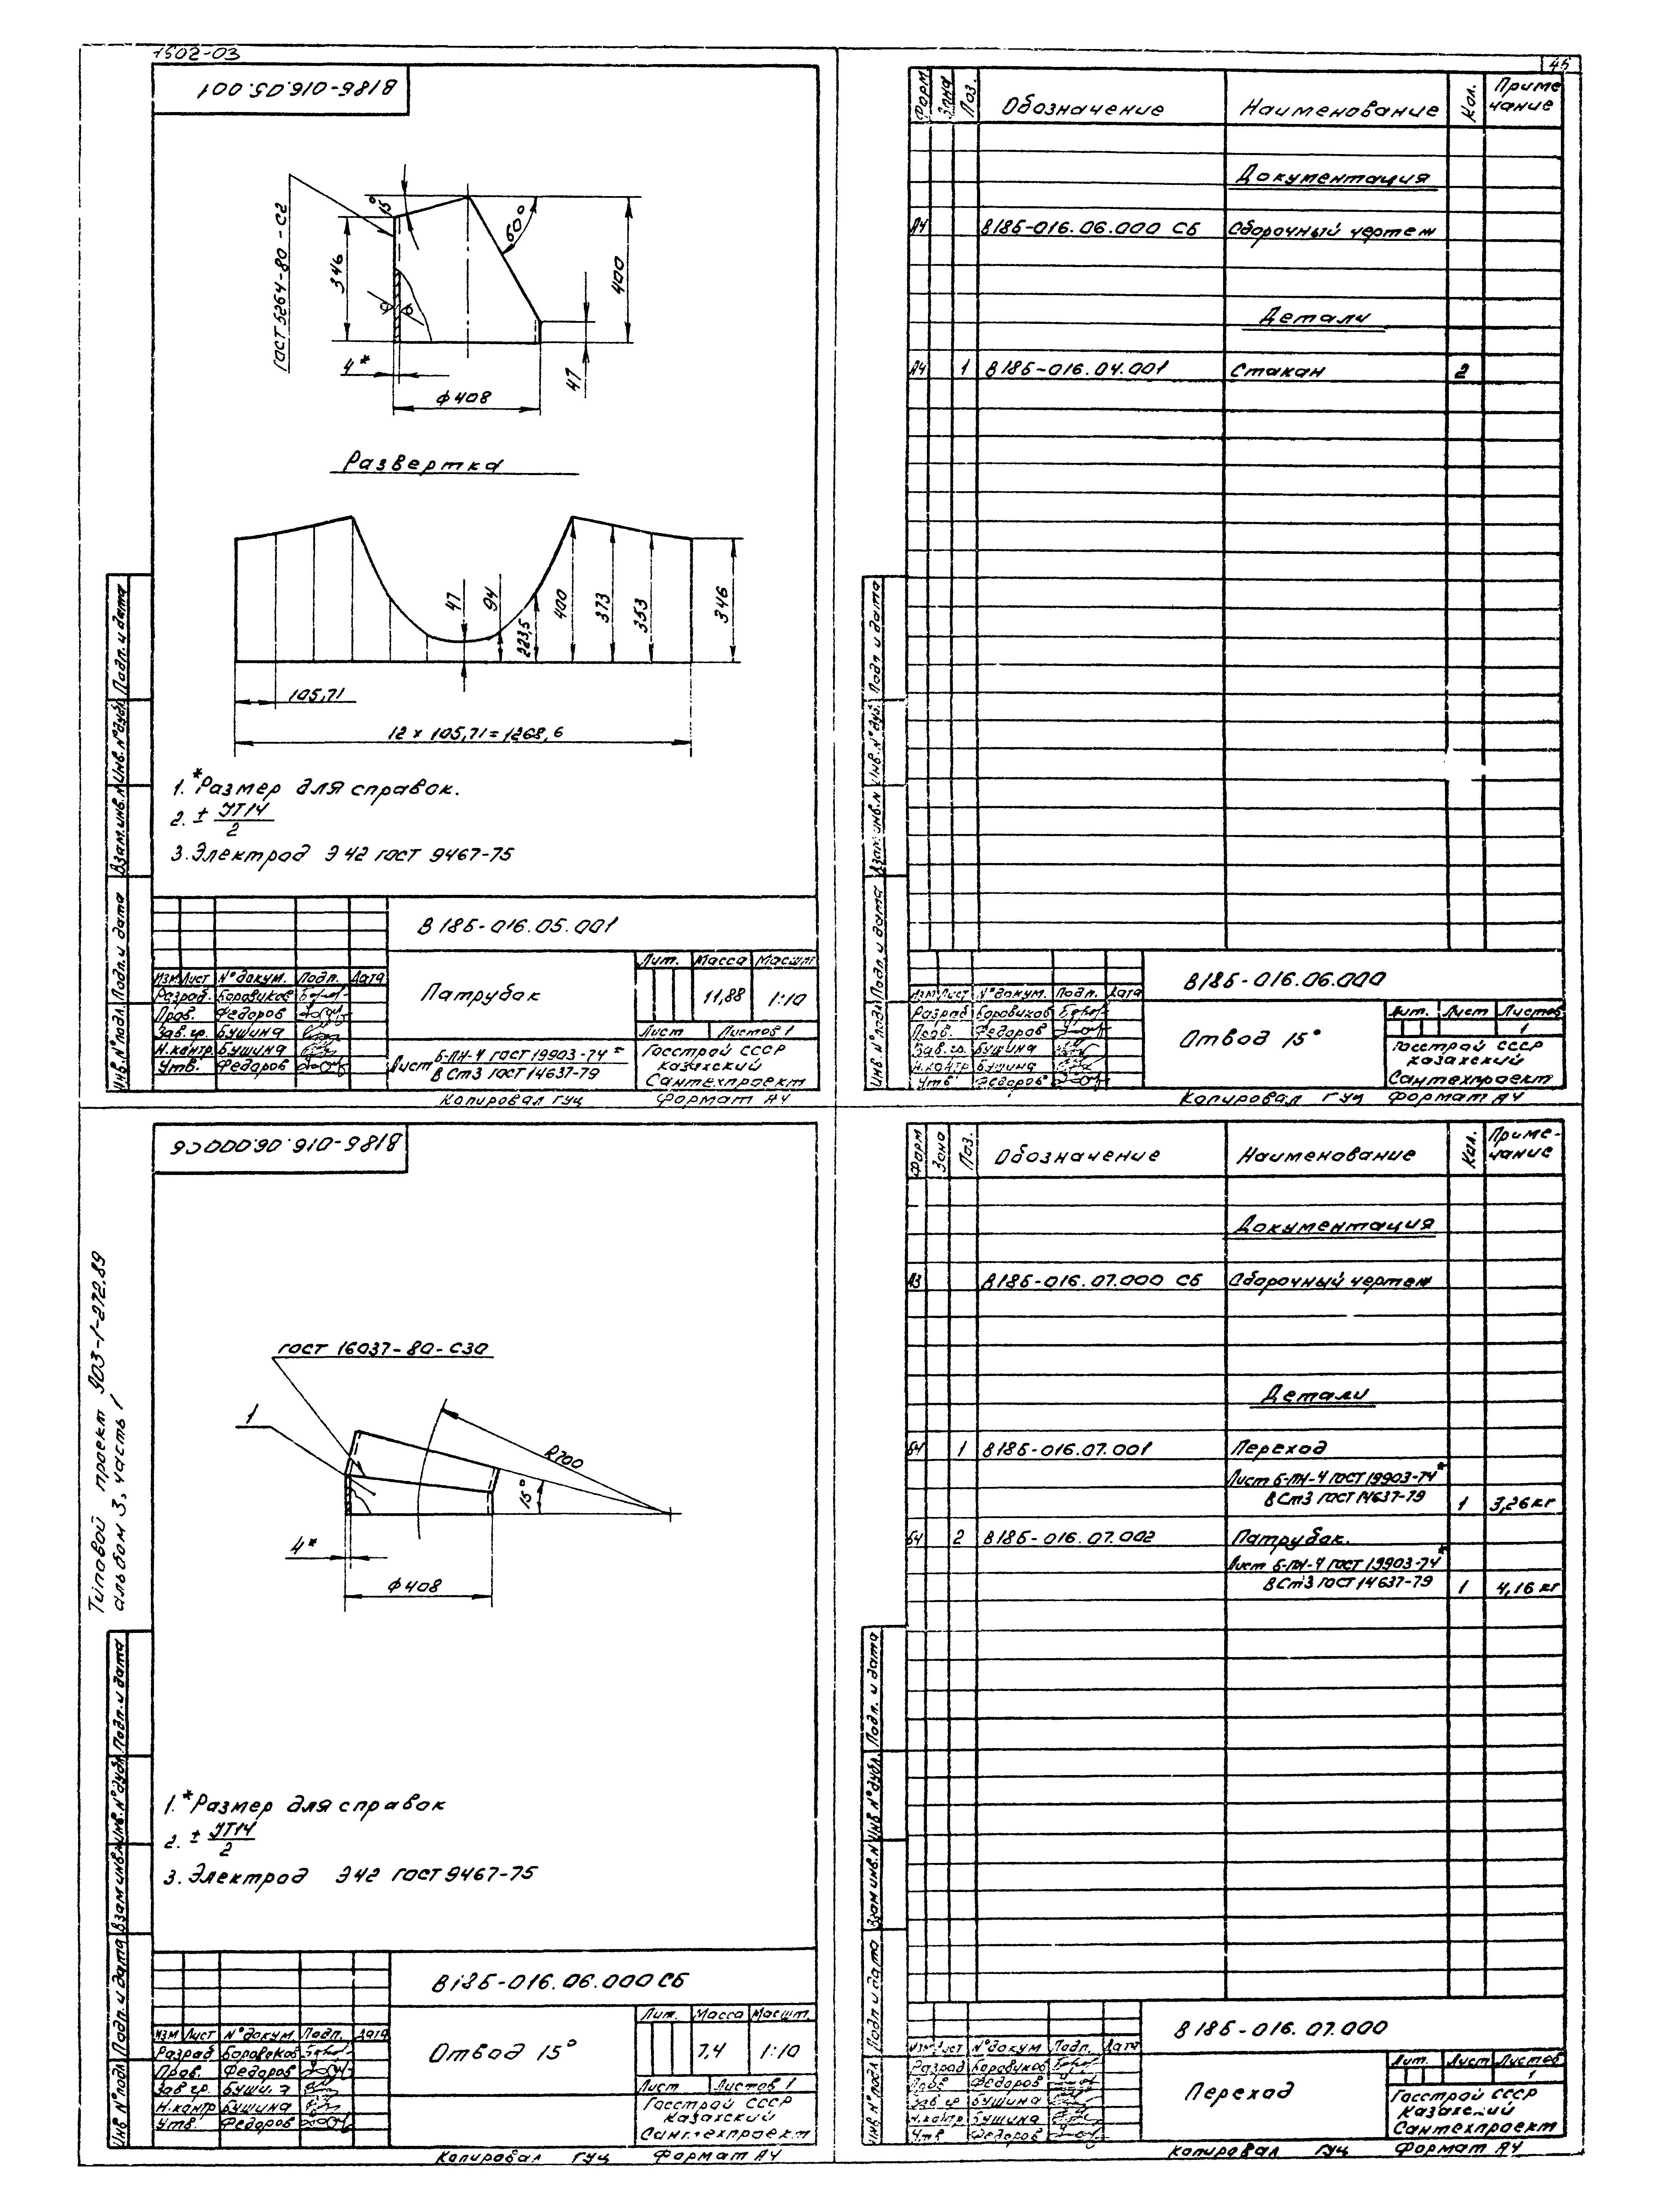 1502-03
45
В18Б-016.05.001
ГОСТ 5264-80-С2
15°
60°
346
400
47
4*
ф408
Развертка
47
94
223,5
400
373
353
346
105,71
12 x 105,71 = 1268,6
1. *Размер для справок.
2. ± JT14/2
3. Электрод Э42 ГОСТ 9467-75
В18Б-016.05.001
Патрубок
Лит. Масса Масшт
11,88 1:10
Лист Листов 1
Изм Лист N° докум. Подп. Дата
Разраб. Боровиков
Пров. Федоров
Зав. гр. Бушина
Н.контр Бушина
Утв. Федоров
Лист Б-ПН-4 ГОСТ 19903-74*
ВСт3 ГОСТ 14637-79
Госстрой СССР
Казахский
Сантехпроект
Копировал ГУЦ Формат А4
Инв. N° подл. Подп. и дата Взам. инв. N Инв. N° дубл. Подп. и дата
Форм Зона Поз. Обозначение Наименование Кол. Приме
чание
Документация
А4 В18Б-016.06.000 СБ Сборочный чертеж
Детали
А4 1 В18Б-016.04.001 Стакан 2
В18Б-016.06.000
Отвод 15°
Лит. Лист Листов
1
Изм Лист N° докум. Подп. Дата
Разраб Боровиков
Пров. Федоров
Зав. гр. Бушина
Н.контр Бушина
Утв Федоров
Госстрой СССР
Казахский
Сантехпроект
Копировал ГУЦ Формат А4
Инв. N° подл Подп. и дата Взам. инв. N Инв. N° дуб. Подп. и дата
В18Б-016.06.000СБ
Типовой проект 903-1-272.89
альбом 3, часть 1
ГОСТ 16037-80-С30
1
R700
15°
4*
ф408
1. *Размер для справок
2. ± JT14/2
3. Электрод Э42 ГОСТ 9467-75
В18Б-016.06.000СБ
Отвод 15°
Лит. Масса Масшт.
7,4 1:10
Лист Листов 1
Изм Лист N° докум. Подп. Дата
Разраб Боровиков
Пров. Федоров
Зав гр.
Н.контр Бушина
Утв. Федоров
Госстрой СССР
Казахский
Сантехпроект
Копировал ГУЦ Формат А4
Инв N° подл Подп. и дата Взам инв. N Инв. N° дубл. Подп. и дата
Форм Зона Поз. Обозначение Наименование Кол. Приме-
чание
Документация
А3 В18Б-016.07.000 СБ Сборочный чертеж
Детали
БЧ 1 В18Б-016.07.001 Переход
Лист Б-ПН-4 ГОСТ 19903-74*
ВСт3 ГОСТ 14637-79 1 3,26 кг
БЧ 2 В18Б-016.07.002 Патрубок.
Лист Б-ПН-4 ГОСТ 19903-74*
ВСт3 ГОСТ 14637-79 1 4,16 кг
В18Б-016.07.000
Переход
Лит. Лист Листов
1
Изм Лист N° докум Подп. Дата
Разраб Боровиков
Пров Федоров
Зав гр Бушина
Н.контр Бушина
Утв Федоров
Госстрой СССР
Казахский
Сантехпроект
Копировал ГУЦ Формат А4
Инв. N° подл Подп. и дата Взам инв. N Инв N° дубл. Подп. и дата